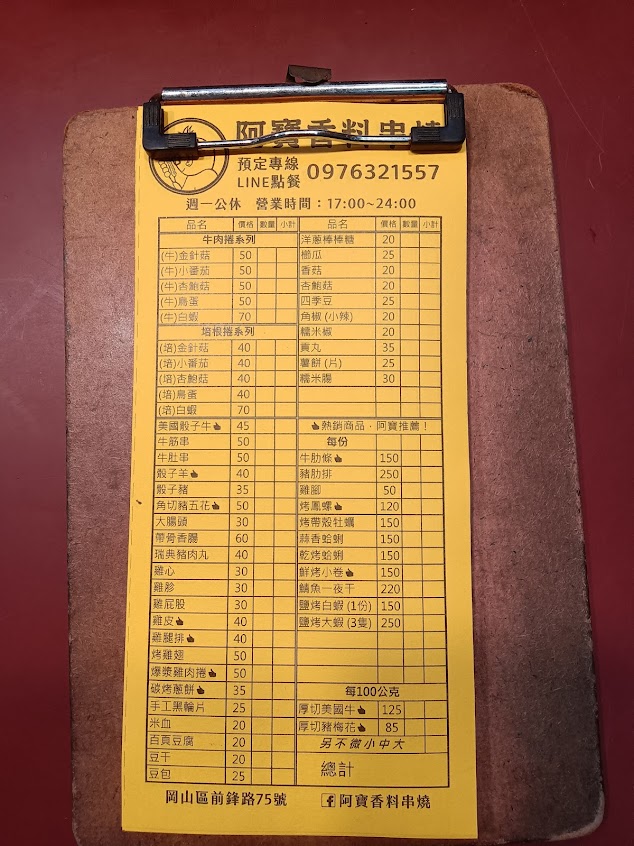 阿寶香料串燒
預定專線
LINE點餐 0976321557
週一公休 營業時間：17:00~24:00
品名 價格 數量 小計
牛肉捲系列
(牛)金針菇 50
(牛)小番茄 50
(牛)杏鮑菇 50
(牛)鳥蛋 50
(牛)白蝦 70
培根捲系列
(培)金針菇 40
(培)小番茄 40
(培)杏鮑菇 40
(培)鳥蛋 40
(培)白蝦 70
美國骰子牛 45
牛筋串 50
牛肚串 50
骰子羊 40
骰子豬 35
角切豬五花 50
大腸頭 30
帶骨香腸 60
瑞典豬肉丸 40
雞心 30
雞胗 30
雞屁股 30
雞皮 40
雞腿排 40
烤雞翅 50
爆漿雞肉捲 50
碳烤蔥餅 35
手工黑輪片 25
米血 20
百頁豆腐 20
豆干 20
豆包 25
品名 價格 數量 小計
洋蔥棒棒糖 20
櫛瓜 25
香菇 20
杏鮑菇 20
四季豆 25
角椒 (小辣) 20
糯米椒 20
貢丸 35
薯餅 (片) 25
糯米腸 30
熱銷商品．阿寶推薦！
每份
牛肋條 150
豬肋排 250
雞腳 50
烤鳳螺 120
烤帶殼牡蠣 150
蒜香蛤蜊 150
乾烤蛤蜊 150
鮮烤小卷 150
鯖魚一夜干 220
鹽烤白蝦 (1份) 150
鹽烤大蝦 (3隻) 250
每100公克
厚切美國牛 125
厚切豬梅花 85
另不微小中大
總計
岡山區前鋒路75號 阿寶香料串燒